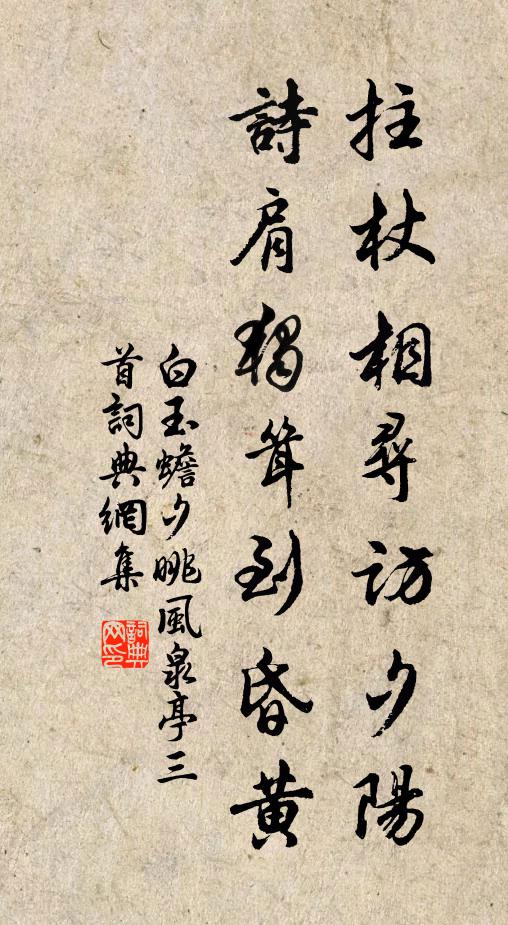 拄杖相尋訪夕陽
詩肩獨聳到昏黃
白玉蟾夕眺風泉亭三
首詞典網集
詞典
网印